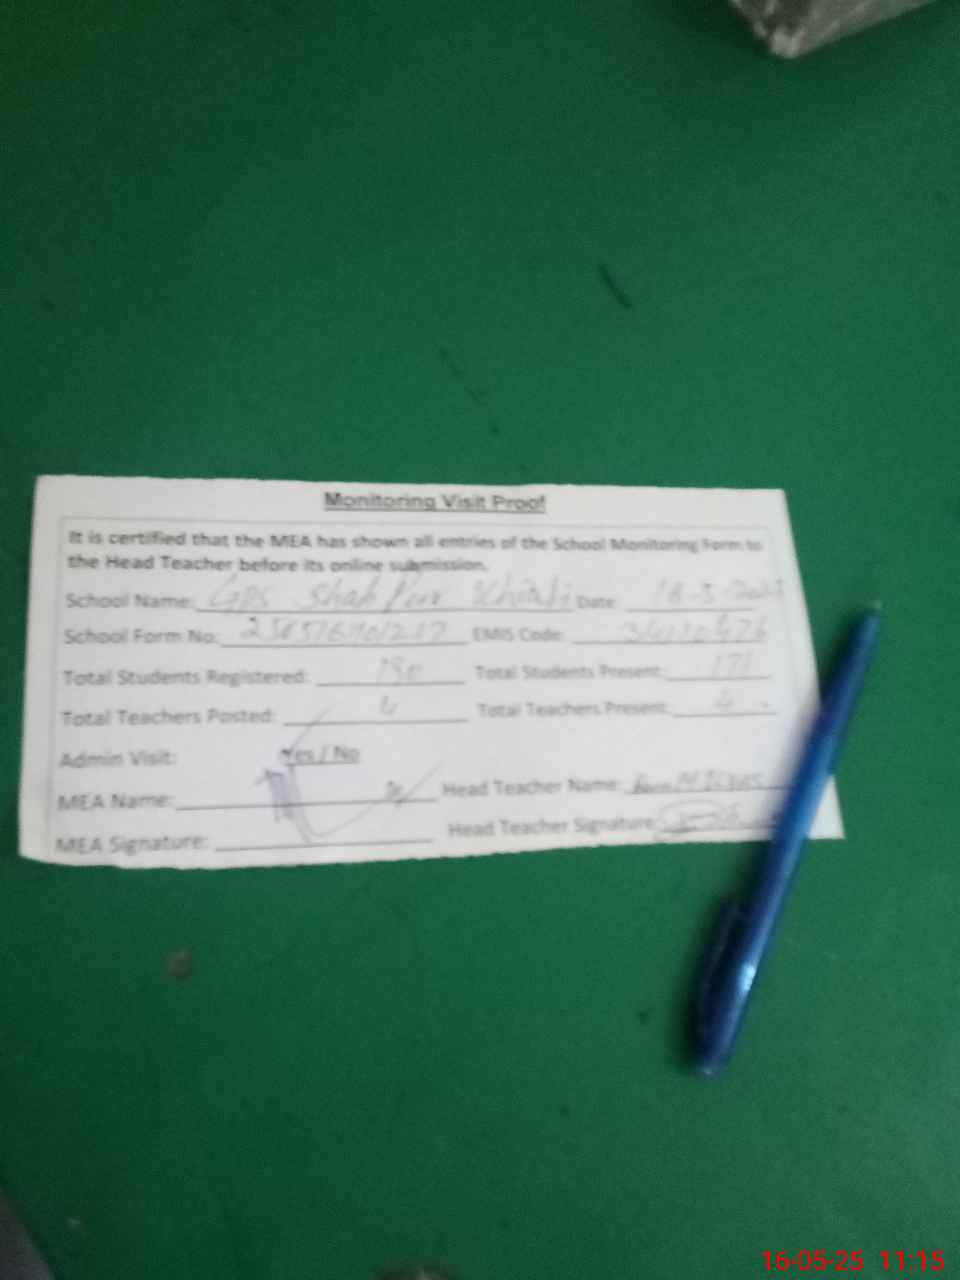 Monitoring Visit Proof
It is certified that the MEA has shown all entries of the School Monitoring Form to
the Head Teacher before its online submission.
School Name: GPS Shah Pur Date:
School Form No: EMIS Code:
Total Students Registered: 190 Total Students Present: 171
Total Teachers Posted: 4 Total Teachers Present: 4
Admin Visit: Yes / No
MEA Name: Head Teacher Name:
MEA Signature: Head Teacher Signature:
16-05-25 11:15